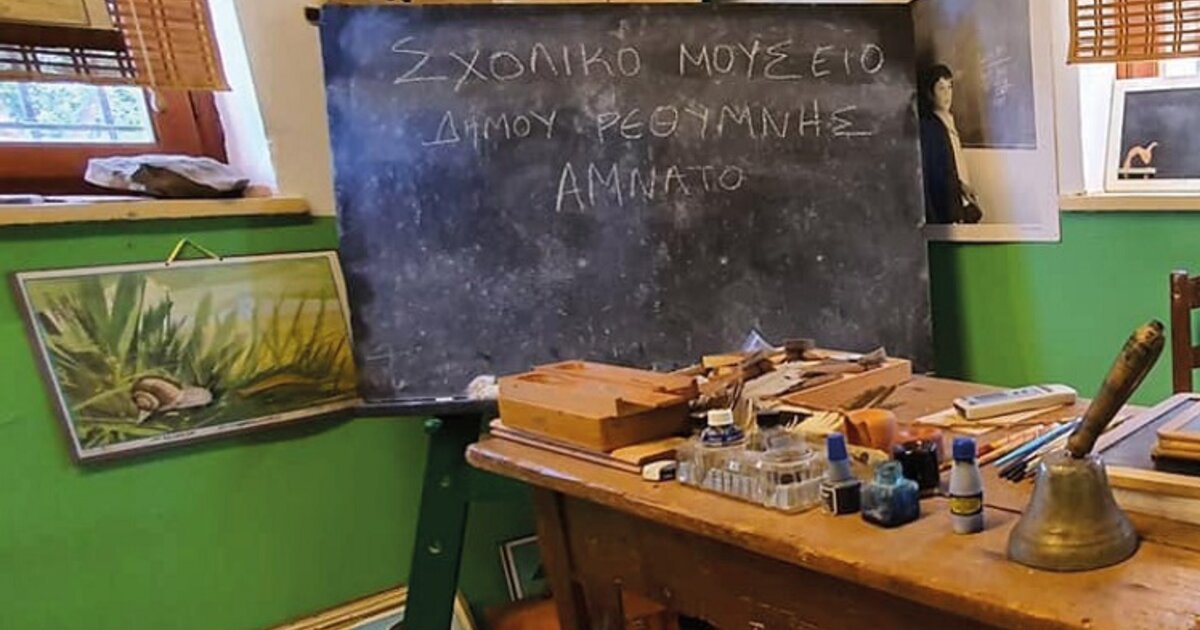 ΣΧΟΛΙΚΟ ΜΟΥΣΕΙΟ
ΔΗΜΟΥ ΡΕΘΥΜΝΗΣ
ΑΜΝΑΤΟ